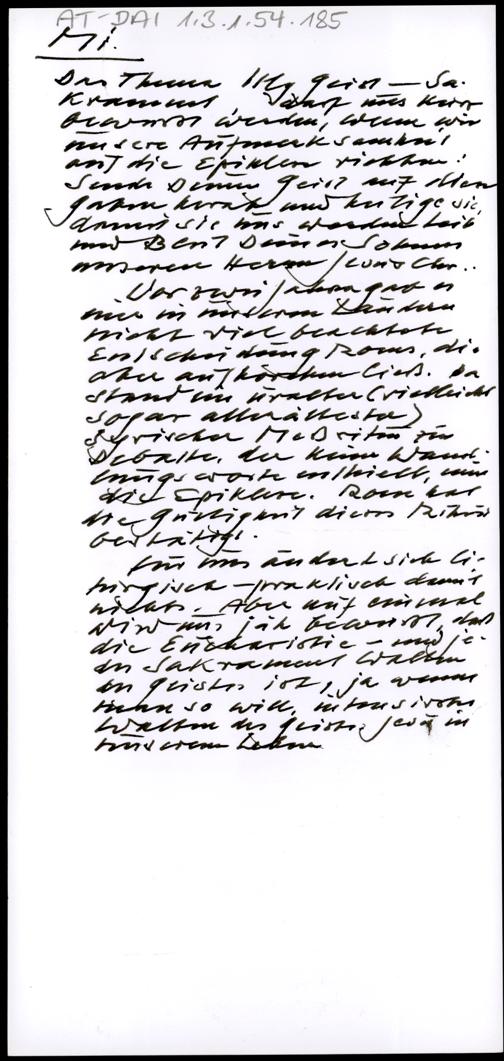 AT-DAI 1.3.1.54.185
Mi.
Das Thema Hlg Geist – Sa-
krament darf uns kurz
bewusst werden, wenn wir
unsere Aufmerksamkeit
auf die Epiklese richten:
Sende Deinen Geist auf diese
Gaben herab und heilige sie,
damit sie uns werden Leib
und Blut Deines Sohnes
unseres Herrn Jesus Chr..
Vor zwei Jahren gab es
eine in unseren Landen
nicht viel beachtete
Entscheidung Roms, die
aber aufhorchen ließ. Da
stand ein uralter (vielleicht
sogar allerältester)
syrischer Meßritus zur
Debatte, der keine Wand-
lungsworte enthielt, nur
die Epiklese. Rom hat
die Gültigkeit dieses Ritus
bestätigt.
Für uns ändert sich li-
turgisch-praktisch damit
nichts. Aber auf einmal
wird uns jäh bewusst, daß
die Eucharistie – und je-
des Sakrament Walten
des Geistes ist, ja wenn
man so will, intensivstes
Walten des Geistes Jesu in
unserem Leben